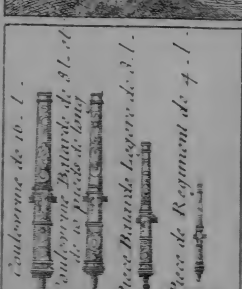 Couleuvrine de 16 - l -
Couleuvrine Batarde de 8 l. et
de 10 pieds de long
Piece Batarde Legere de 8 - l -
Piece de Regiment de 4 - l -